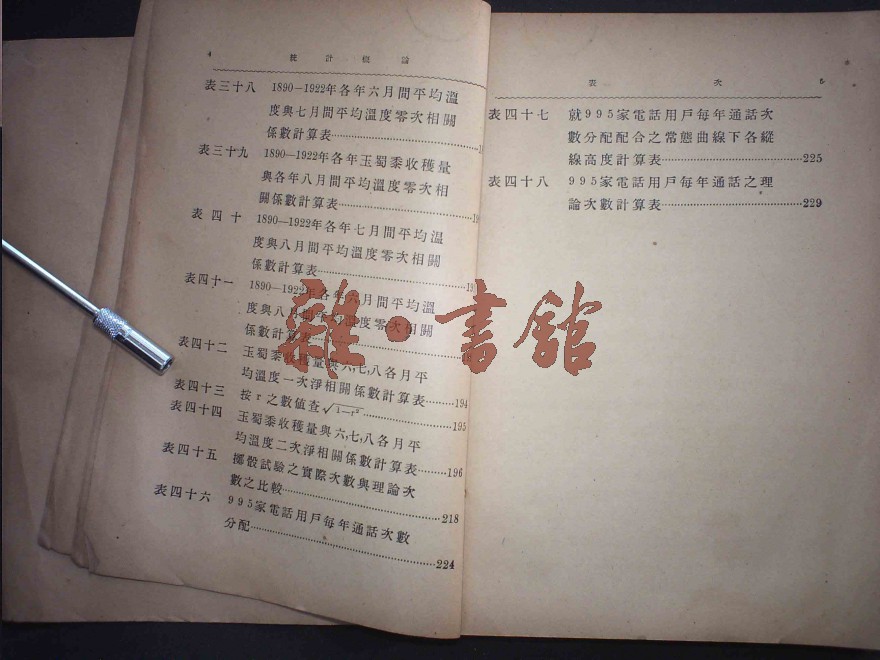 4 統計概論
表三十八 1890—1922年各年六月間平均溫
度與七月間平均溫度零次相關
係數計算表
表三十九 1890—1922年各年玉蜀黍收穫量
與各年八月間平均溫度零次相
關係數計算表
表四十 1890—1922年各年七月間平均溫
度與八月間平均溫度零次相關
係數計算表
表四十一 1890—1922年各年六月間平均溫
度與八月間平均溫度零次相關
係數計算表
表四十二 玉蜀黍收穫量與六,七,八各月平
均溫度一次淨相關係數計算表………194
表四十三 按r之數値查√1—r²………195
表四十四 玉蜀黍收穫量與六,七,八各月平
均溫度二次淨相關係數計算表………196
表四十五 擲骰試驗之實際次數與理論次
數之比較………218
表四十六 995家電話用戶每年通話次數
分配………224
表次 5
表四十七 就995家電話用戶每年通話次
數分配配合之常態曲線下各縱
線高度計算表………225
表四十八 995家電話用戶每年通話之理
論次數計算表………229
雜·書館